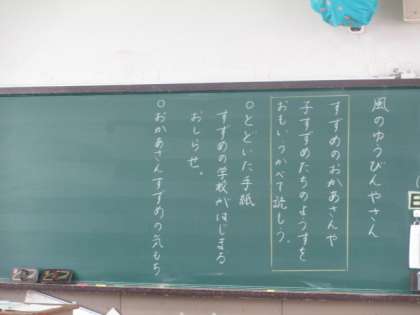 風のゆうびんやさん
すずめのおかあさんや
子すずめたちのようすを
おもいうかべて読もう。
○とどいた手紙
すずめの学校がはじまる
おしらせ。
○おかあさんすずめの気もち